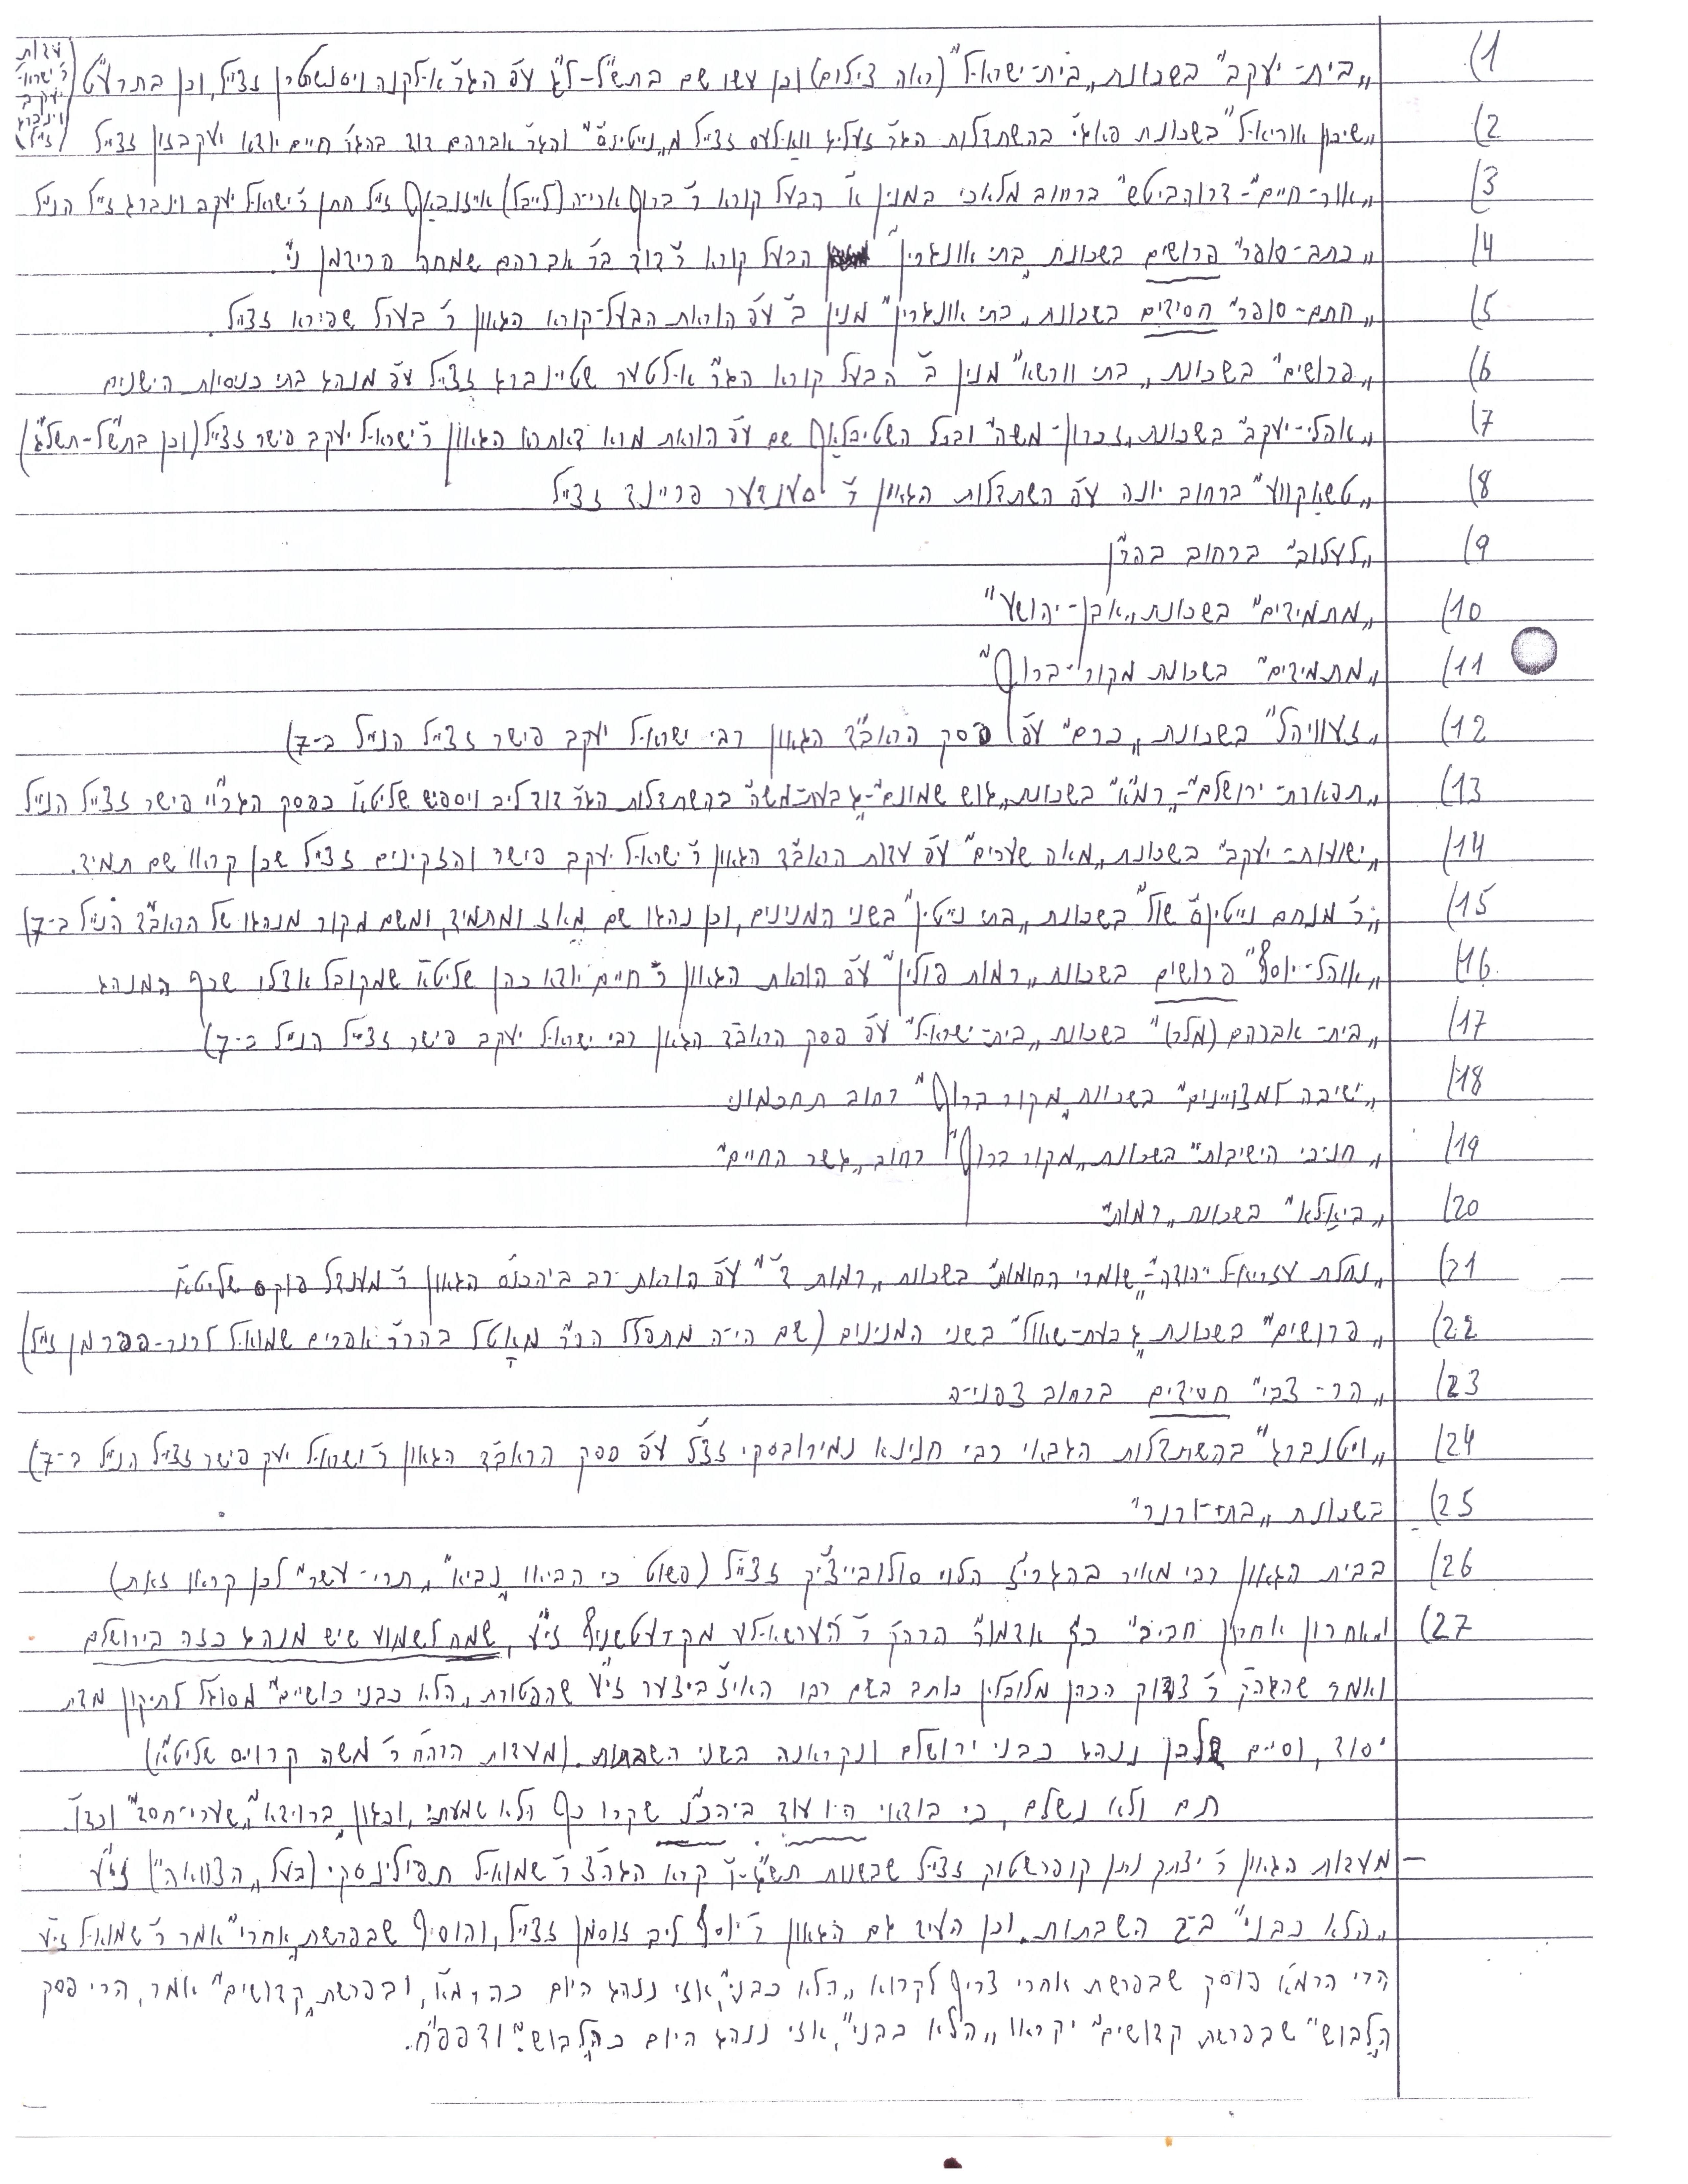 1) „בית-יעקב" בשכונת „בית-ישראל" (ראה צילום) וכן עשו שם בתש"ל-ל"ג ע"פ הגר"א אלקנה ויסנשטרן זצ"ל, וכן בתרע"ט (עדות ר' ישראל יעקב וינברג ז"ל)
2) „שיכון אוריאל" בשכונת פאג"י בהשתדלות הגר"ז זעליג וואלעס זצ"ל מ„נייטינס" והגר"א אברהם דוד בהגר"ח חיים יודא יעקבזון זצ"ל
3) „אור-חיים"-דרוהביטש" ברחוב מלאכי במנין א' הבעל קורא ר' ברוך אריה (לייבל) אייזנבאך ז"ל חתן ר' ישראל יעקב וינברג ז"ל הנ"ל
4) „כתב-סופר" פרושים בשכונת „בתי אונגרין" הבעל קורא ר' דוד בר' אברהם שמחה פרידמן ני'
5) „חתם-סופר" חסידים בשכונת „בתי אונגרין" מנין ב' ע"פ הוראת הבעל-קורא הגאון ר' בערל שפירא זצ"ל.
6) „פרושים" בשכונת „בתי וורשא" מנין ב' הבעל קורא הגר"א אלטער שטיינברג זצ"ל ע"פ מנהג בתי כנסיות הישנים
7) „אהלי-יעקב" בשכונת „זכרון-משה" ובכל השטיבלאך שם ע"פ הוראת מרא דאתרא הגאון ר' ישראל יעקב פישר זצ"ל (וכן בתש"ל-תשל"ג)
8) „טשאקווע" ברחוב יונה ע"פ השתדלות הגאון ר' סענדער פריינד זצ"ל
9) „לעלוב" ברחוב בהר"ן
10) „מתמידים" בשכונת „אבן-יהושע"
11) „מתמידים" בשכונת מקור-ברוך"
12) „זעוויהל" בשכונת „כרם" ע"פ פסק הראב"ד הגאון רבי ישראל יעקב פישר זצ"ל הנ"ל ב-7)
13) „תפארת-ירושלם"-„רמ"א" בשכונת „גוש שמונים"-„גבעת-משה" בהשתדלות הגר"ד דוד ליב ויספיש שליט"א כפסק הגרי"י פישר זצ"ל הנ"ל
14) „ישועות-יעקב" בשכונת „מאה שערים" ע"פ עדות הראב"ד הגאון ר' ישראל יעקב פישר והזקינים זצ"ל שכן קראו שם תמיד.
15) „ר' מנחם נייטינס שול" בשכונת „בתי נייטין" בשני המנינים, וכן נהגו שם מאז ומתמיד, ומשם מקור מנהגו של הראב"ד הנ"ל ב-7)
16) „אוהל-יוסף" פרושים בשכונת „רמות פולין" ע"פ הוראת הגאון ר' חיים יודא כהן שליט"א שמקובל אצלו שכך המנהג
17) „בית-אברהם (מלב)" בשכונת „בית-ישראל" ע"פ פסק הראב"ד הגאון רבי ישראל יעקב פישר זצ"ל הנ"ל ב-7)
18) „ישיבה למצויינים" בשכונת „מקור ברוך" רחוב תחכמוני
19) „חניכי הישיבות" בשכונת „מקור ברוך" רחוב „גשר החיים"
20) „ביאלא" בשכונת „רמות"
21) „נחלת עזריאל יהודה"-„שומרי החומות" בשכונת „רמות ד'" ע"פ הוראת רב ביהכנ"ס הגאון ר' מענדל פוקס שליט"א
22) „פרושים" בשכונת „גבעת-שאול" בשני המנינים (שם היה מתפלל הר"ר מאטל בהר"ר אפרים שמואל לרנר-פפרמן ז"ל)
23) „הר-צבי" חסידים ברחוב צפניה
24) „ויטנברג" בהשתדלות הגבאי רבי חנינא נמירובסקי זצ"ל ע"פ פסק הראב"ד הגאון ר' ישראל יעק פישר זצ"ל הנ"ל ב-7)
25) בשכונת „בתי-ורנר"
26) בבית הגאון רבי מאיר בהגרי"ז הלוי סולובייצ'יק זצ"ל (פשוט כי הביאו „נביא" „תרי-עשר" לכן קראו זאת)
27) ואחרון אחרון חביב" כ"ק אדמו"ר הרה"ק ר' הערשאלע מקרעטשניף זי"ע, שמח לשמוע שיש מנהג כזה בירושלם
ואמר שהגרה"ק ר' צדוק הכהן מלובלין כותב בשם רבו האיז'ביצער זי"ע שהפטורת „הלא כבני כושיים" מסוגל לתיקון מדת
יסוד, וסיים לכן ננהג כבני ירושלם ונקראנה בשני השבתות. (מעדות הרה"ח ר' משה קרויס שליט"א)
תם ולא נשלם, כי בודאי היו עוד ביהכ"נ שקרו כך הלא שמעתי, וכגון „ברוידא" „שערי-חסד" וכדו'.
– מעדות הגאון ר' יצחק נתן קופרשטוק זצ"ל שבשנות תש"ג-ו' קרא הגה"צ ר' שמואל תפילינסקי (בעל „הצוואה") זי"ע
„הלא כבני" ב-ב' השבתות. וכן העיד גם הגאון ר' יוסף ליב זוסמן זצ"ל, והוסיף שבפרשת „אחרי" אמר ר' שמואל זי"ע
הרי הרמ"א פוסק שבפרשת אחרי צריך לקרוא „הלא כבני", אזי ננהג היום כהרמ"א, ובפרשת „קדושים" אמר, הרי פסק
ה„לבוש" שבפרשת קדושים" יקראו „הלא כבני", אזי ננהג היום כה„לבוש". ודפפ"ח.